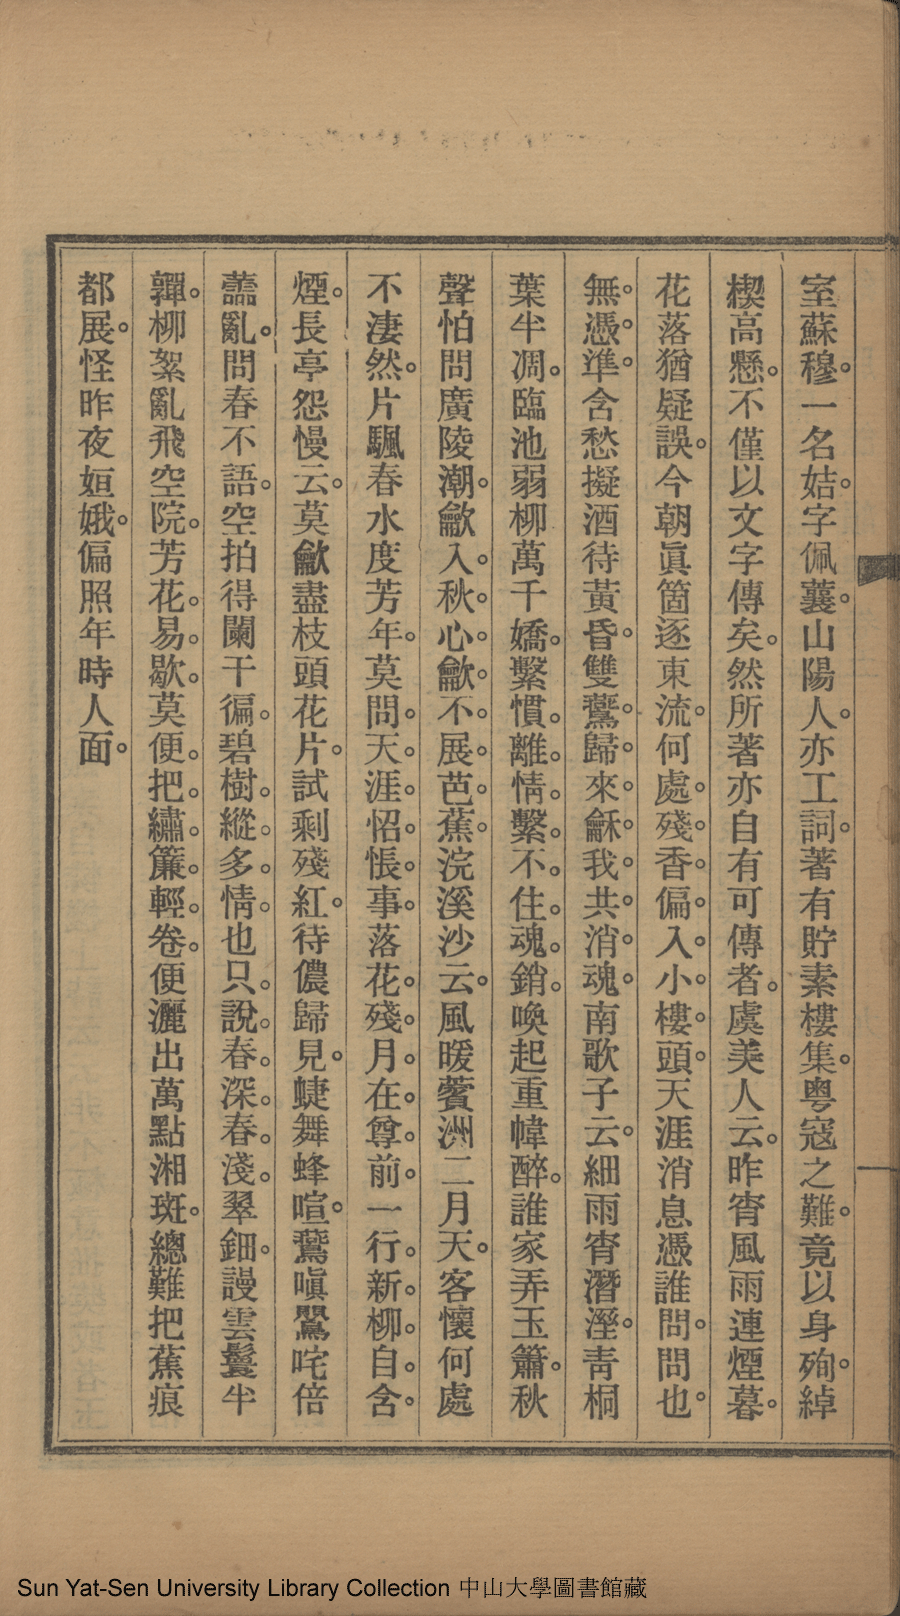 室蘇穆。一名姞。字佩蘘。山陽人。亦工詞。著有貯素樓集。粤寇之難。竟以身殉。綽
楔高懸。不僅以文字傳矣。然所著亦自有可傳者。虞美人云。昨宵風雨連煙暮。
花落猶疑誤。今朝眞箇逐東流。何處。殘。香。偏。入。小。樓。頭。天涯消息憑誰問。問也。
無。憑。準。含愁擬酒待黃昏。雙鸞。歸。來。龢。我。共。消。魂。南歌子云。細雨宵潛溼。靑桐
葉半凋。臨池弱柳萬千嬌。繫慣。離。情。繫。不。住。魂。銷。喚起重幃醉。誰家弄玉簫。秋
聲怕問廣陵潮。歛入。秋。心。歛。不。展。芭。蕉。浣溪沙云。風暖薲洲二月天。客懷何處
不凄然。片颿春水度芳年。莫問。天。涯。怊。悵。事。落花。殘。月。在。尊。前。一行。新。柳。自。含。
煙。長亭怨慢云。莫歛盡枝頭花片。試剩殘紅。待儂歸見。蜨舞蜂喧。鸞嗔鸎咤倍
藞亂。問春不語。空拍得闌干徧。碧樹。縱。多。情。也只。說。春。深。春。淺。翠鈿。謾雲鬟半
嚲。柳絮亂飛空院。芳花。易。歇。莫便。把。繡。簾。輕。卷。便灑出萬點湘斑。總難把蕉痕
都展。怪昨夜姮娥。偏照年時人面。
Sun Yat-Sen University Library Collection 中山大學圖書館藏